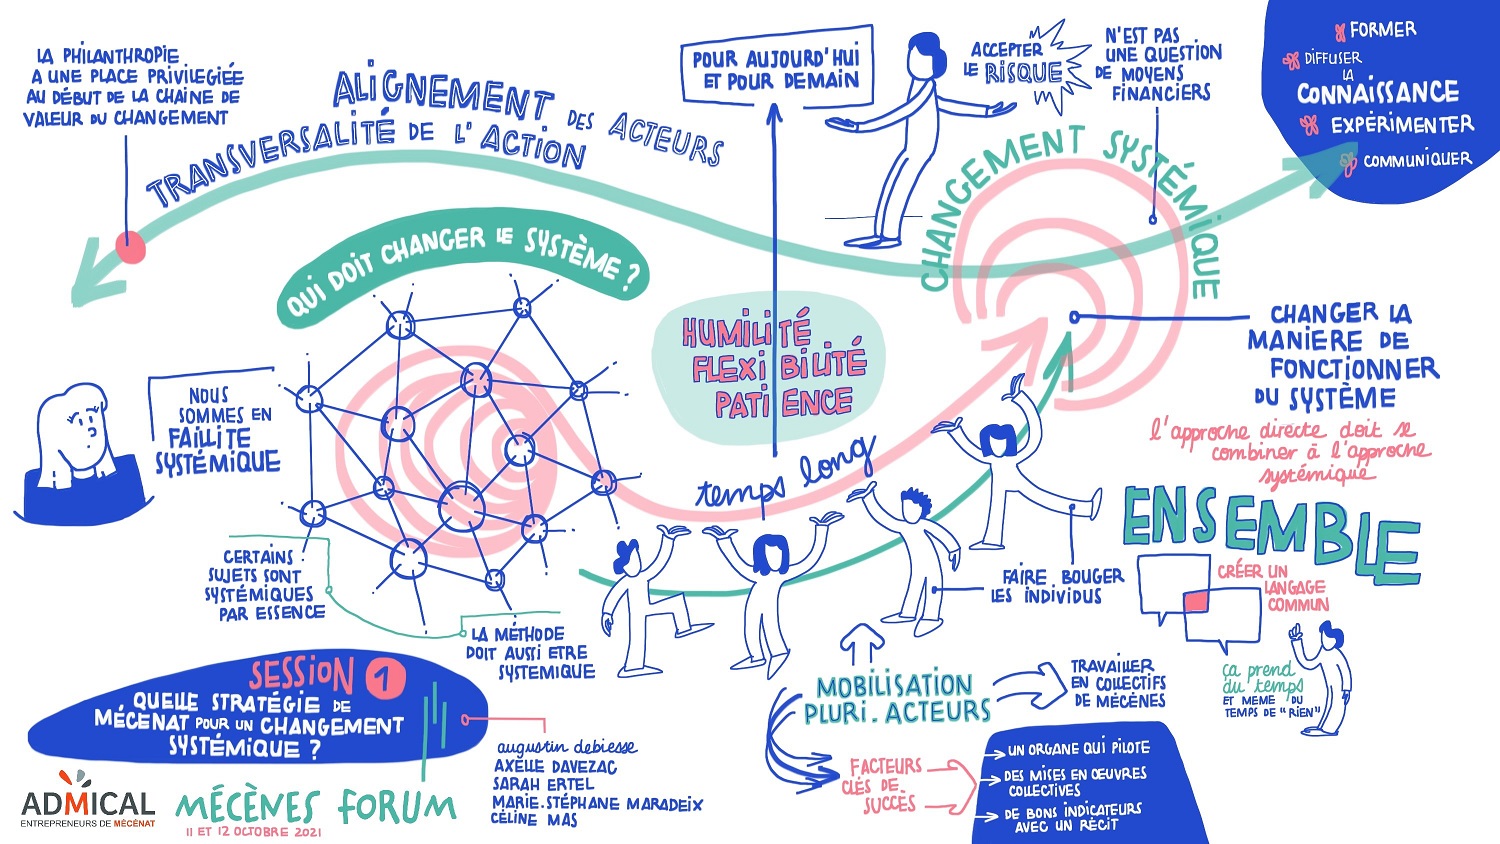 LA PHILANTHROPIE
A UNE PLACE PRIVILEGIÉE
AU DÉBUT DE LA CHAINE DE
VALEUR DU CHANGEMENT
ALIGNEMENT DES ACTEURS
TRANSVERSALITÉ DE L'ACTION
POUR AUJOURD'HUI
ET POUR DEMAIN
ACCEPTER
LE RISQUE
N'EST PAS
UNE QUESTION
DE MOYENS
FINANCIERS
FORMER
DIFFUSER
LA
CONNAISSANCE
EXPÉRIMENTER
COMMUNIQUER
CHANGEMENT SYSTÉMIQUE
QUI DOIT CHANGER LE SYSTÈME ?
NOUS
SOMMES EN
FAILLITE
SYSTÉMIQUE
HUMILITÉ
FLEXIBILITÉ
PATIENCE
temps long
CHANGER LA
MANIERE DE
FONCTIONNER
DU SYSTÈME
l'approche directe doit se
combiner à l'approche
systémique
ENSEMBLE
CRÉER UN
LANGAGE
COMMUN
ça prend
du temps
ET MEME DU
TEMPS DE "RIEN"
FAIRE BOUGER
LES INDIVIDUS
CERTAINS
SUJETS SONT
SYSTÉMIQUES
PAR ESSENCE
LA MÉTHODE
DOIT AUSSI ETRE
SYSTEMIQUE
MOBILISATION
PLURI.ACTEURS
TRAVAILLER
EN COLLECTIFS
DE MÉCÈNES
FACTEURS
CLÉS DE
SUCCÈS
UN ORGANE QUI PILOTE
DES MISES EN ŒUVRES
COLLECTIVES
DE BONS INDICATEURS
AVEC UN RÉCIT
SESSION 1
QUELLE STRATÉGIE DE
MÉCENAT POUR UN CHANGEMENT
SYSTÉMIQUE ?
augustin debiesse
AXELLE DAVEZAC
SARAH ERTEL
MARIE.STÉPHANE MARADEIX
CÉLINE MAS
ADMICAL
ENTREPRENEURS DE MÉCÉNAT
MÉCÈNES FORUM
11 ET 12 OCTOBRE 2021